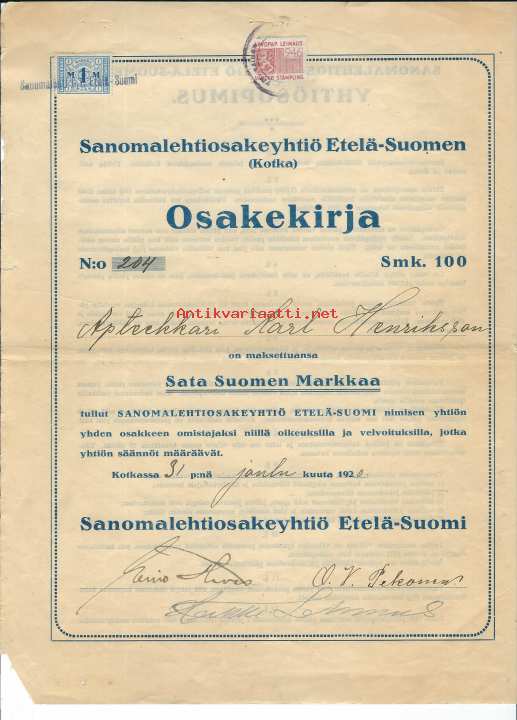 M 1 M
Sanomalehtiosakeyhtiö Etelä-Suomi
LEIMAUS
1946
STÄMPLING
Sanomalehtiosakeyhtiö Etelä-Suomen
(Kotka)
Osakekirja
N:o 204 Smk. 100
Antikvariaatti.net
Apteekkari Karl Henriksson
on maksettuansa
Sata Suomen Markkaa
tullut SANOMALEHTIOSAKEYHTIÖ ETELÄ-SUOMI nimisen yhtiön
yhden osakkeen omistajaksi niillä oikeuksilla ja velvoituksilla, jotka
yhtiön säännöt määräävät.
Kotkassa 31 p:nä joulu kuuta 1920.
Sanomalehtiosakeyhtiö Etelä-Suomi
Eino O. V.
Heikki